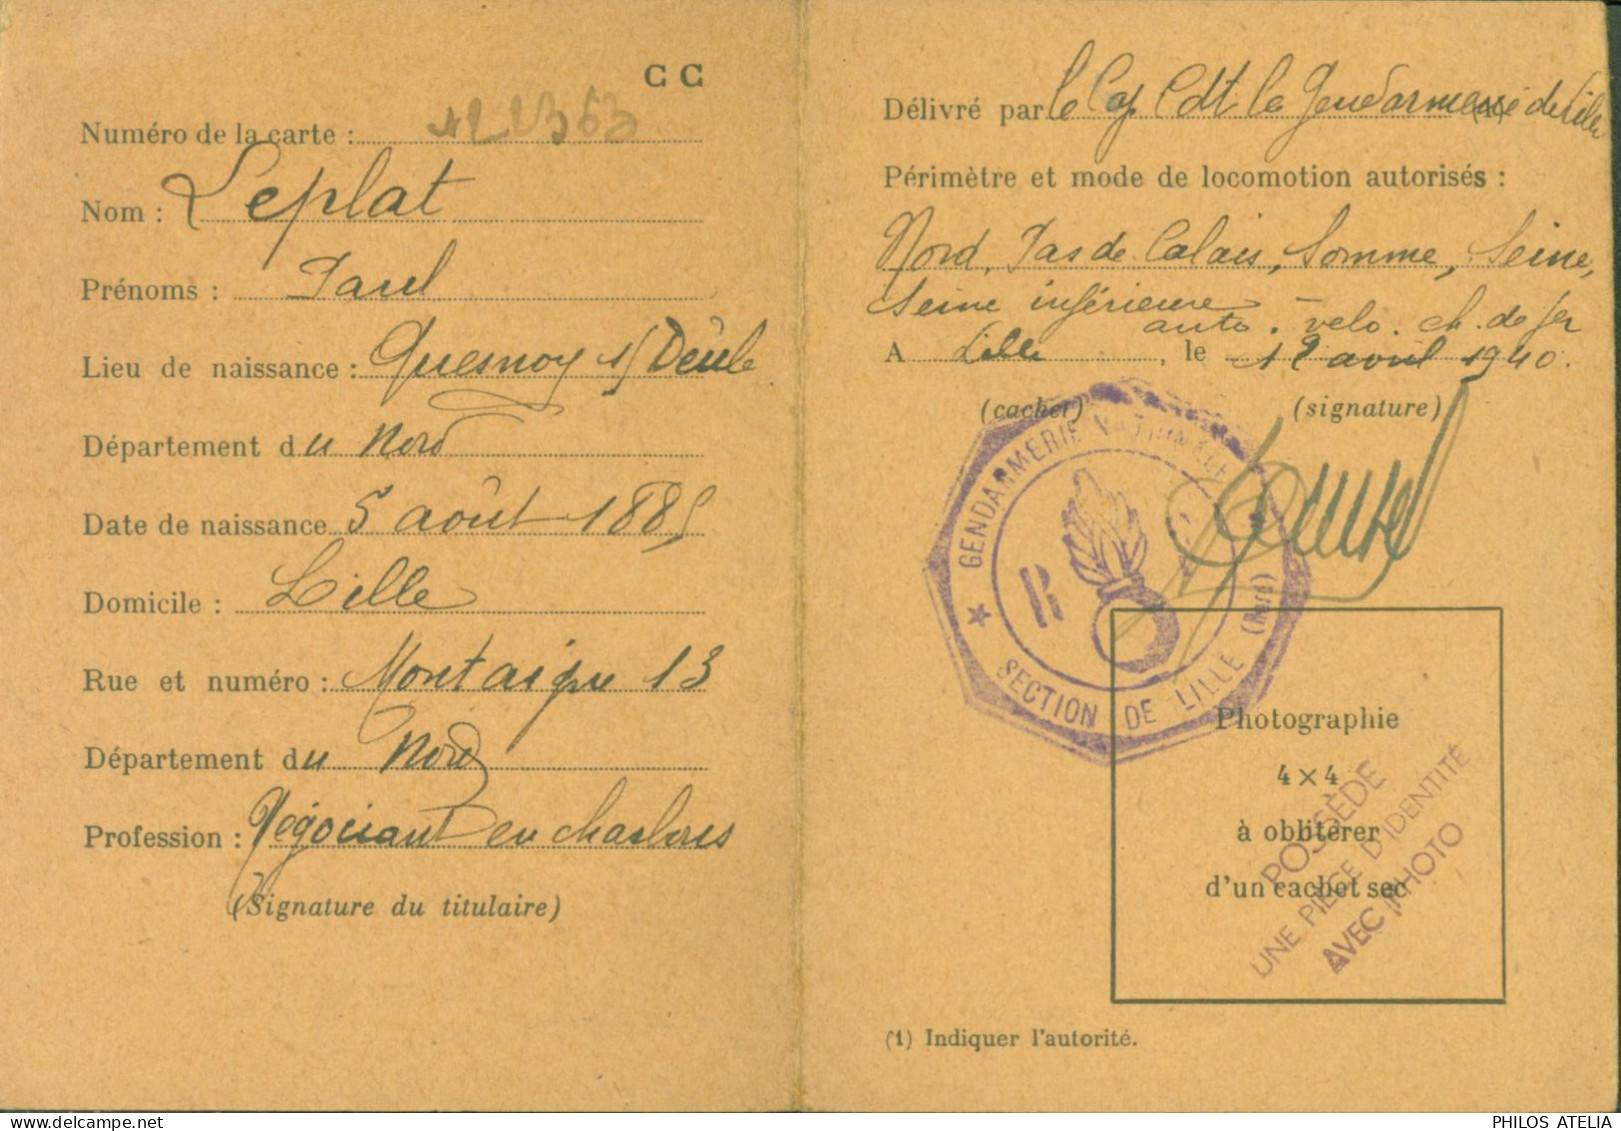 CC
Numéro de la carte :
Nom : Leplat
Prénoms : Paul
Lieu de naissance : Quesnoy s/ Deûle
Département du Nord
Date de naissance 5 août 1885
Domicile : Lille
Rue et numéro : Montaigne 13
Département du Nord
Profession : Négociant en charbons
(Signature du titulaire)
Délivré par le Cap Cdt la Gendarmerie de Lille
Périmètre et mode de locomotion autorisés :
Nord, Pas de Calais, Somme, Seine,
Seine inférieure
auto. vélo. ch. de fer
A Lille, le 12 avril 1940.
(cachet) (signature)
GENDARMERIE NATIONALE
R
SECTION DE LILLE (Nord)
Photographie
4 × 4
à oblitérer
d'un cachet sec
POSSÈDE
UNE PIÈCE D'IDENTITÉ
AVEC PHOTO
(1) Indiquer l'autorité.
PHILOS ATELIA